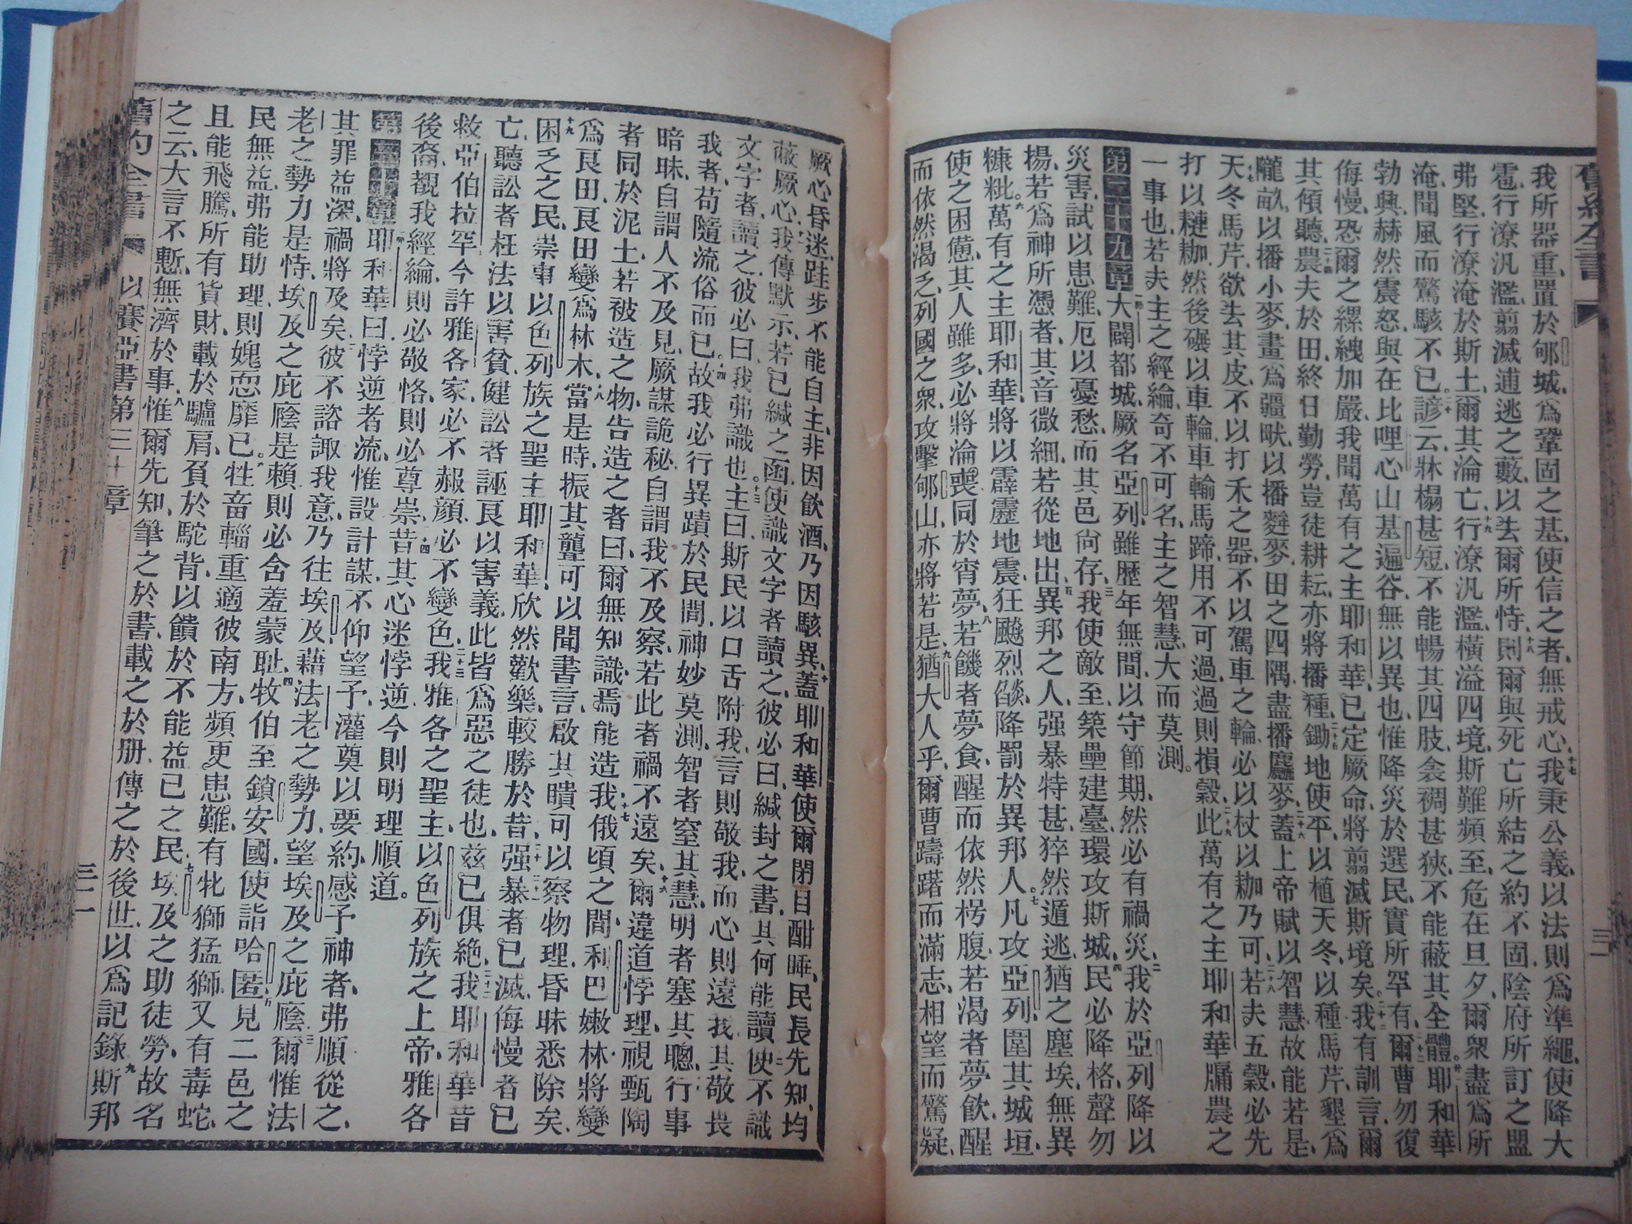 舊約全書
我所器重置於郇城爲鞏固之基使信之者無戒心十七我秉公義以法則爲準繩使降大
雹行潦汎濫翦滅逋逃之藪以去爾所恃十八則爾與死亡所結之約不固陰府所訂之盟
弗堅行潦淹於斯土爾其淪亡十九行潦汎濫橫溢四境斯難頻至危在旦夕爾衆盡爲所
淹聞風而驚駭不已二十諺云牀榻甚短不能暢其四肢衾裯甚狹不能蔽其全體耶和華
勃興赫然震怒與在比哩心山基遍谷無以異也惟降災於選民實所罕有爾曹勿復
侮慢恐爾之縲絏加嚴我聞萬有之主耶和華已定厥命將翦滅斯境矣我有訓言爾
其傾聽農夫於田終日勤勞豈徒耕耘亦將播種鋤地使平以植天冬以種馬芹墾爲
隴畝以播小麥畫爲疆畎以播麰麥田之四隅盡播麤麥蓋上帝賦以智慧故能若是
天冬馬芹欲去其皮不以打禾之器不以駕車之輪必以杖以枷乃可若夫五穀必先
打以耞枷然後碾以車輪車輪馬蹄用不可過過則損穀此萬有之主耶和華牖農之
一事也若夫主之經綸奇不可名主之智慧大而莫測
第二十九章大闢都城厥名亞列雖歷年無間以守節期然必有禍災我於亞列降以
災害試以患難厄以憂愁而其邑尙存三我使敵至築壘建臺環攻斯城民必降格聲勿
揚若爲神所憑者其音微細若從地出異邦之人强暴特甚猝然遁逃猶之塵埃無異
糠粃六萬有之主耶和華將以霹靂地震狂飈烈燄降罰於異邦人七凡攻亞列圍其城垣
使之困憊其人雖多必將淪喪同於宵夢八若饑者夢食醒而依然枵腹若渴者夢飲醒
而依然渴乏列國之衆攻擊郇山亦將若是九猶大人乎爾曹躊躇而滿志相望而驚疑
厥心昏迷跬步不能自主非因飲酒乃因駭異十蓋耶和華使爾閉目酣睡民長先知均
蔽厥心我傳默示若已緘之函使識文字者讀之彼必曰緘封之書其何能讀使不識
文字者讀之彼必曰我弗識也十三主曰斯民以口舌附我言則敬我而心則遠我其敬畏
我者苟隨流俗而已十四故我必行異蹟於民間神妙莫測智者窒其慧明者塞其聰行事
暗昧自謂人不及見厥謀詭秘自謂我不及察若此者禍不遠矣十六爾違道悖理視甄陶
者同於泥土若被造之物告造之者曰爾無知識焉能造我十七俄頃之間利巴嫩林將變
爲良田良田變爲林木十八當是時振其聾可以聞書言啟其瞶可以察物理昏昧悉除矣
十九困乏之民崇事以色列族之聖主耶和華欣然歡樂較勝於昔强暴者已滅侮慢者已
亡聽訟者枉法以害貧健訟者誣良以害義此皆爲惡之徒也茲已俱絕我耶和華昔
救亞伯拉罕今許雅各家必不赧顏必不變色我雅各之聖主以色列族之上帝雅各
後裔觀我經綸則必敬恪則必尊崇昔其心迷悖逆今則明理順道
第三十章耶和華曰悖逆者流惟設計謀不仰望予灌奠以要約感予神者弗順從之
其罪益深禍將及矣彼不諮諏我意乃往埃及藉法老之勢力望埃及之庇廕三爾惟法
老之勢力是恃埃及之庇廕是賴則必含羞蒙恥四牧伯至鎖安國使詣哈匿五見二邑之
民無益弗能助理則媿恧靡已六牲畜輜重適彼南方頻更患難有牝獅猛獅又有毒蛇
且能飛騰所有貨財載於驢肩負於駝背以饋於不能益已之民七埃及之助徒勞故名
之云大言不慙無濟於事八惟爾先知筆之於書載之於册傳之於後世以爲記錄九斯邦
舊約全書 以賽亞書第三十章